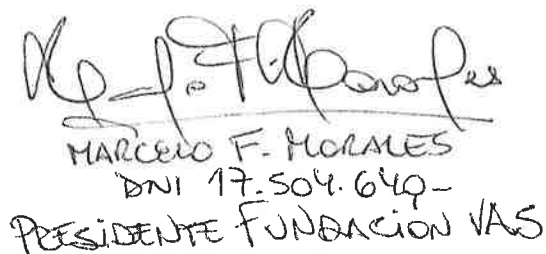 MARCELO F. MORALES
DNI 17.504.649-
PRESIDENTE FUNDACION VAS